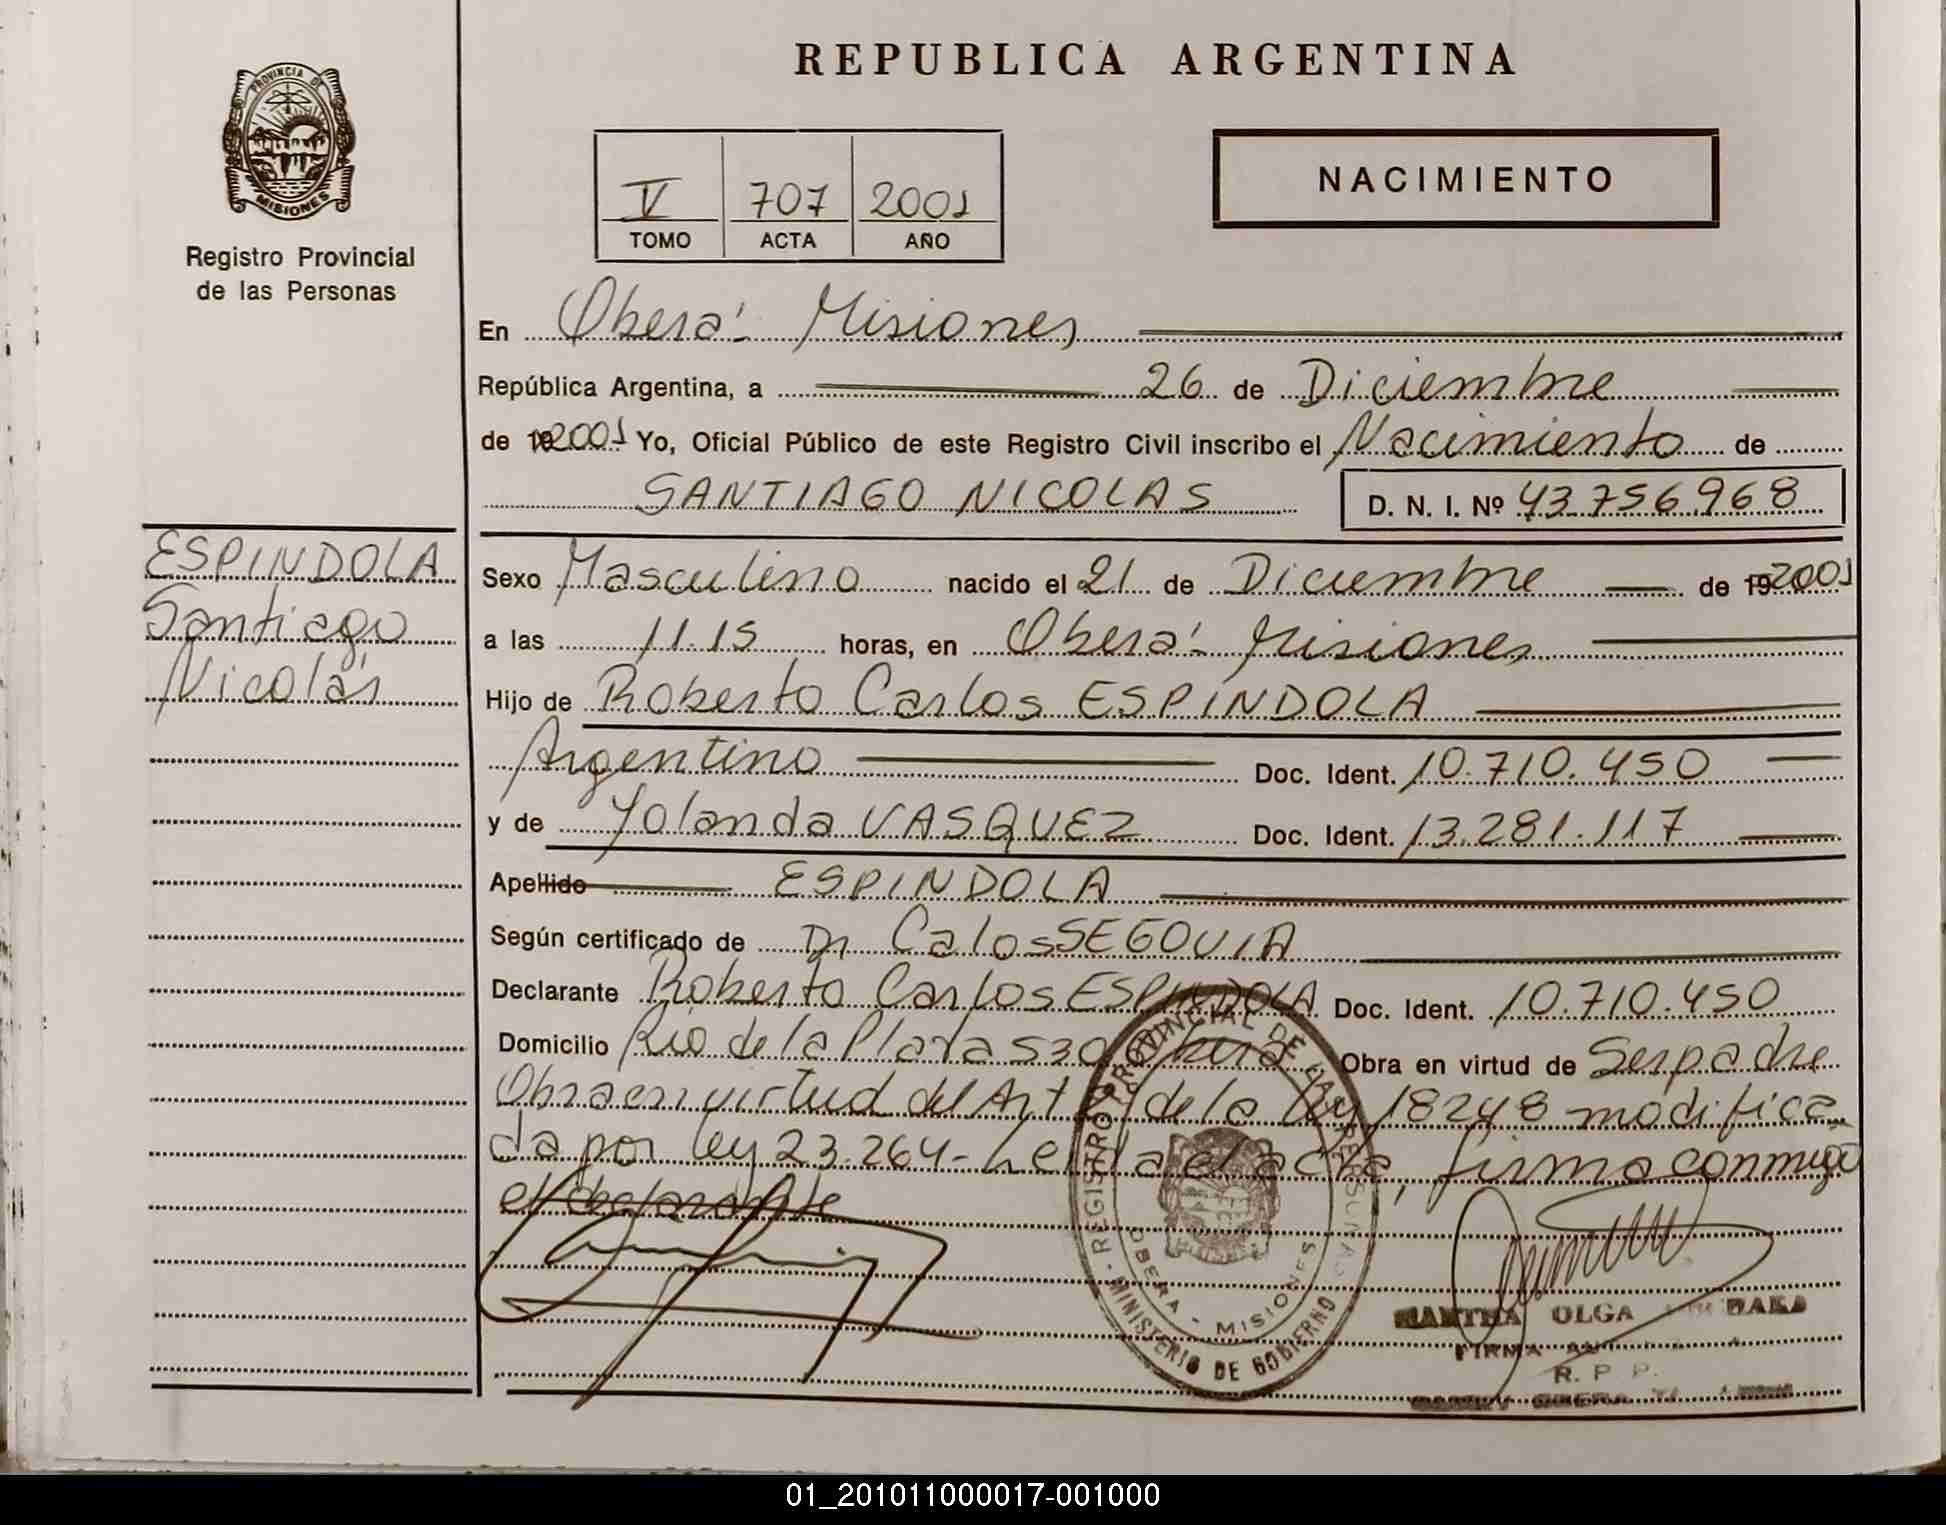 REPUBLICA ARGENTINA
PROVINCIA DE
MISIONES
Registro Provincial
de las Personas
V 707 2001
TOMO ACTA AÑO
NACIMIENTO
En Oberá - Misiones
República Argentina, a 26 de Diciembre
de 19 2001 Yo, Oficial Público de este Registro Civil inscribo el Nacimiento de
SANTIAGO NICOLAS D. N. I. Nº 43.756.968
ESPINDOLA
Santiago
Nicolás
Sexo Masculino nacido el 21 de Diciembre de 19 2001
a las 11.15 horas, en Oberá - Misiones
Hijo de Roberto Carlos ESPINDOLA
Argentino Doc. Ident. 10.710.450
y de Yolanda VASQUEZ Doc. Ident. 13.281.117
Apellido ESPINDOLA
Según certificado de Dr Calos SEGOVIA
Declarante Roberto Carlos ESPINDOLA Doc. Ident. 10.710.450
Domicilio Rio de la Plata 530 Oberá Obra en virtud de Ser padre
Obra en virtud del Art de la ley 18248 modifica
da por ley 23.264 - Leida el acta, firma conmigo
el declarante
REGISTRO PROVINCIAL DE LAS PERSONAS
OBERA - MISIONES
MINISTERIO DE GOBIERNO
MARTHA OLGA
FIRMA
R. P. P.
OBERA
01_201011000017-001000